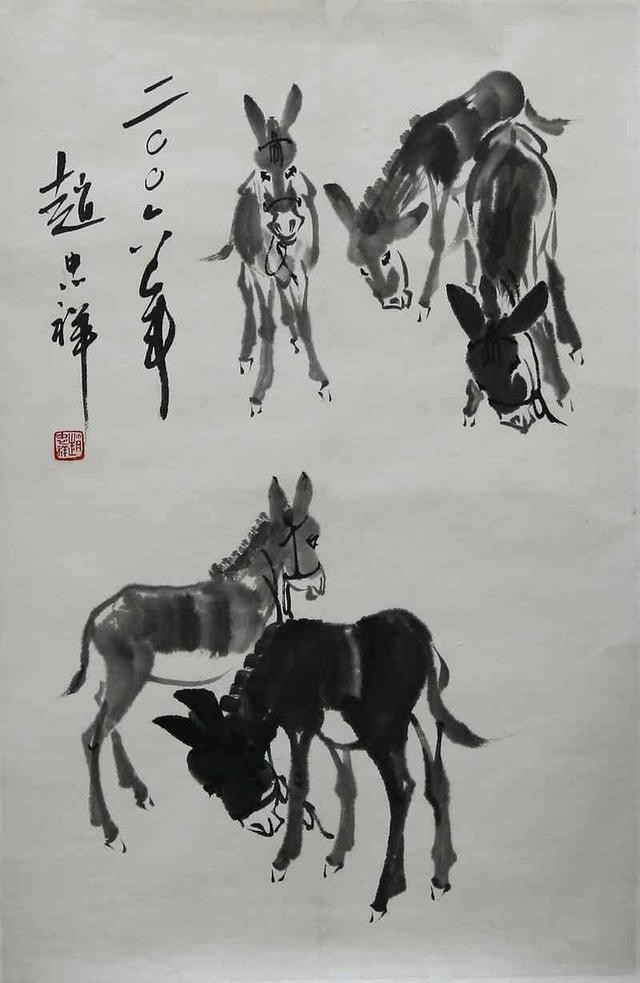 二〇〇六年
趙忠祥
趙忠祥